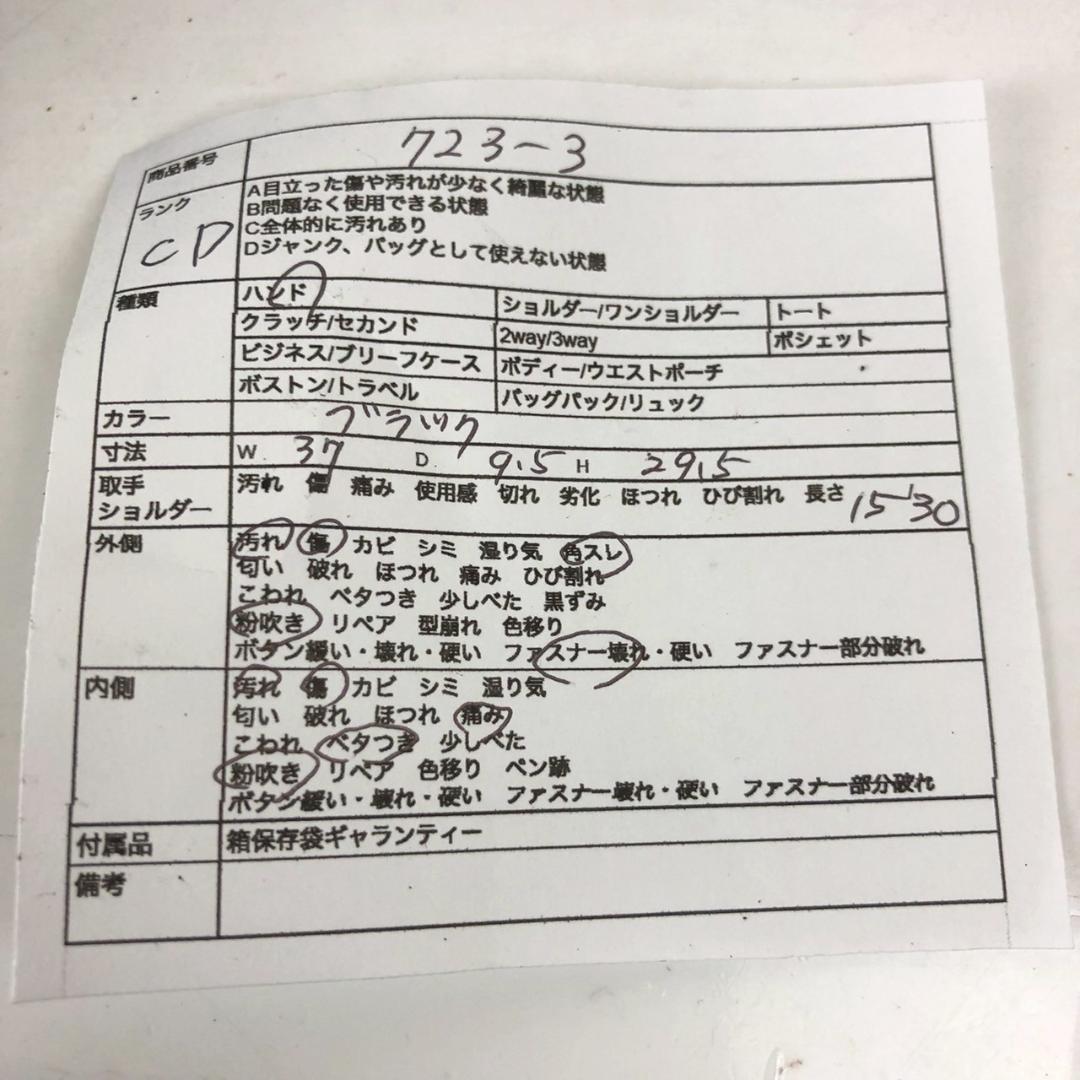 商品番号 723-3
ランク CD
A目立った傷や汚れが少なく綺麗な状態
B問題なく使用できる状態
C全体的に汚れあり
Dジャンク、バッグとして使えない状態
種類 ハンド ショルダー/ワンショルダー トート
クラッチ/セカンド 2way/3way ポシェット
ビジネス/ブリーフケース ボディー/ウエストポーチ
ボストン/トラベル バッグパック/リュック
カラー ブラック
寸法 W. 37 D. 9.5 H 29.5
取手 汚れ 傷 痛み 使用感 切れ 劣化 ほつれ ひび割れ 長さ 15 30
ショルダー
外側 汚れ 傷 カビ シミ 湿り気 角スレ
匂い 破れ ほつれ 痛み ひび割れ
こわれ ベタつき 少しべた 黒ずみ
粉吹き リペア 型崩れ 色移り
ボタン緩い・壊れ・硬い ファスナー壊れ・硬い ファスナー部分破れ
内側 汚れ 傷 カビ シミ 湿り気
匂い 破れ ほつれ 痛み
こわれ ベタつき 少しべた
粉吹き リペア 色移り ペン跡
ボタン緩い・壊れ・硬い ファスナー壊れ・硬い ファスナー部分破れ
付属品 箱保存袋ギャランティー
備考